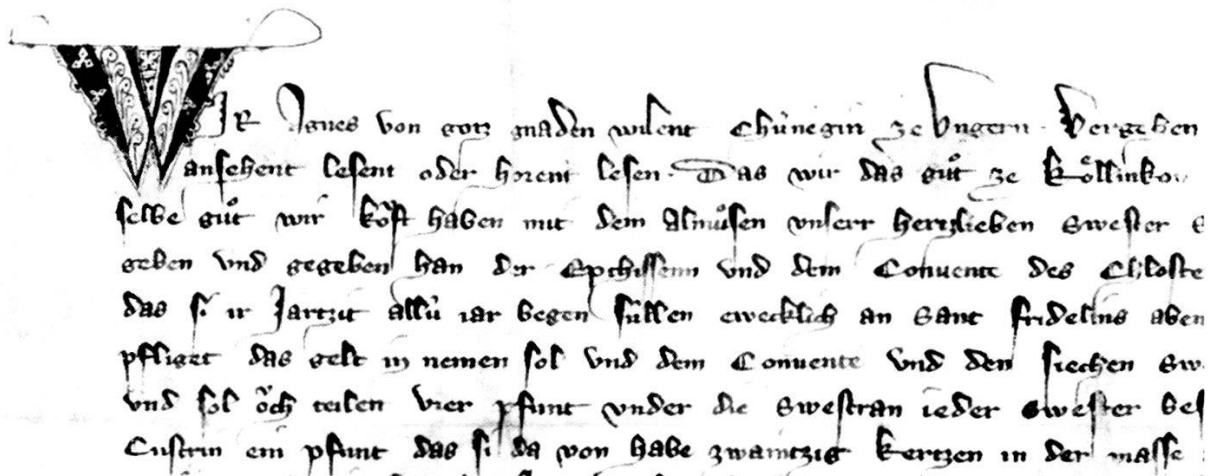 WIR Agnes von gotz gnaden wilent Chúnegin ze Vngern. Vergehen
ansehent lesent oder hörent lesen. Das wir das gůt ze
selbe gůt wir kŏft haben mit dem almůsen vnserr hertzlieben Swester
geben vnd gegeben han der Epthissenn vnd dem Conuente des
das si ir Jartzit allú iar begen súllen ewecklich an Sant fridelins
pfliget das gelt in nemen sol vnd dem Conuente vnd den siechen
vnd sol ŏch teilen vier pfunt vnder die Swestran ieder Swester
Custrin ein pfunt das si da von habe zwaintzig kertzen in der masse